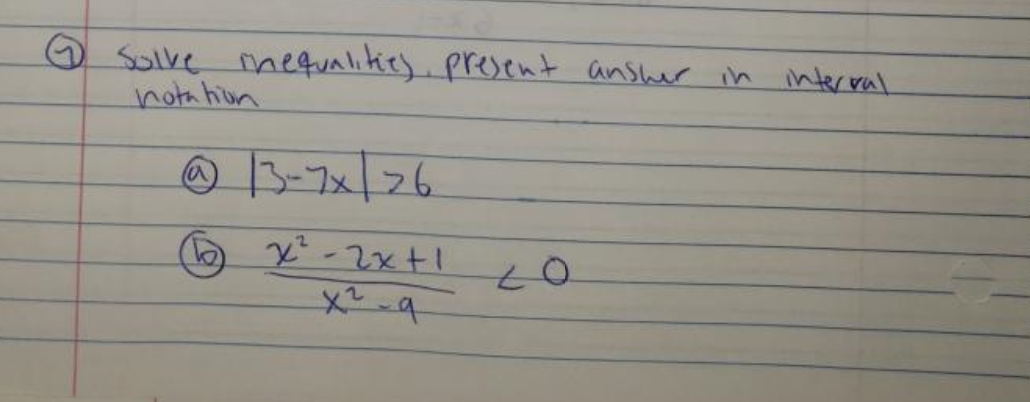 ① Solve inequalities. present answer in interval
notation
ⓐ |3-7x| >6
ⓑ x² - 2x + 1
x² - 9 < 0